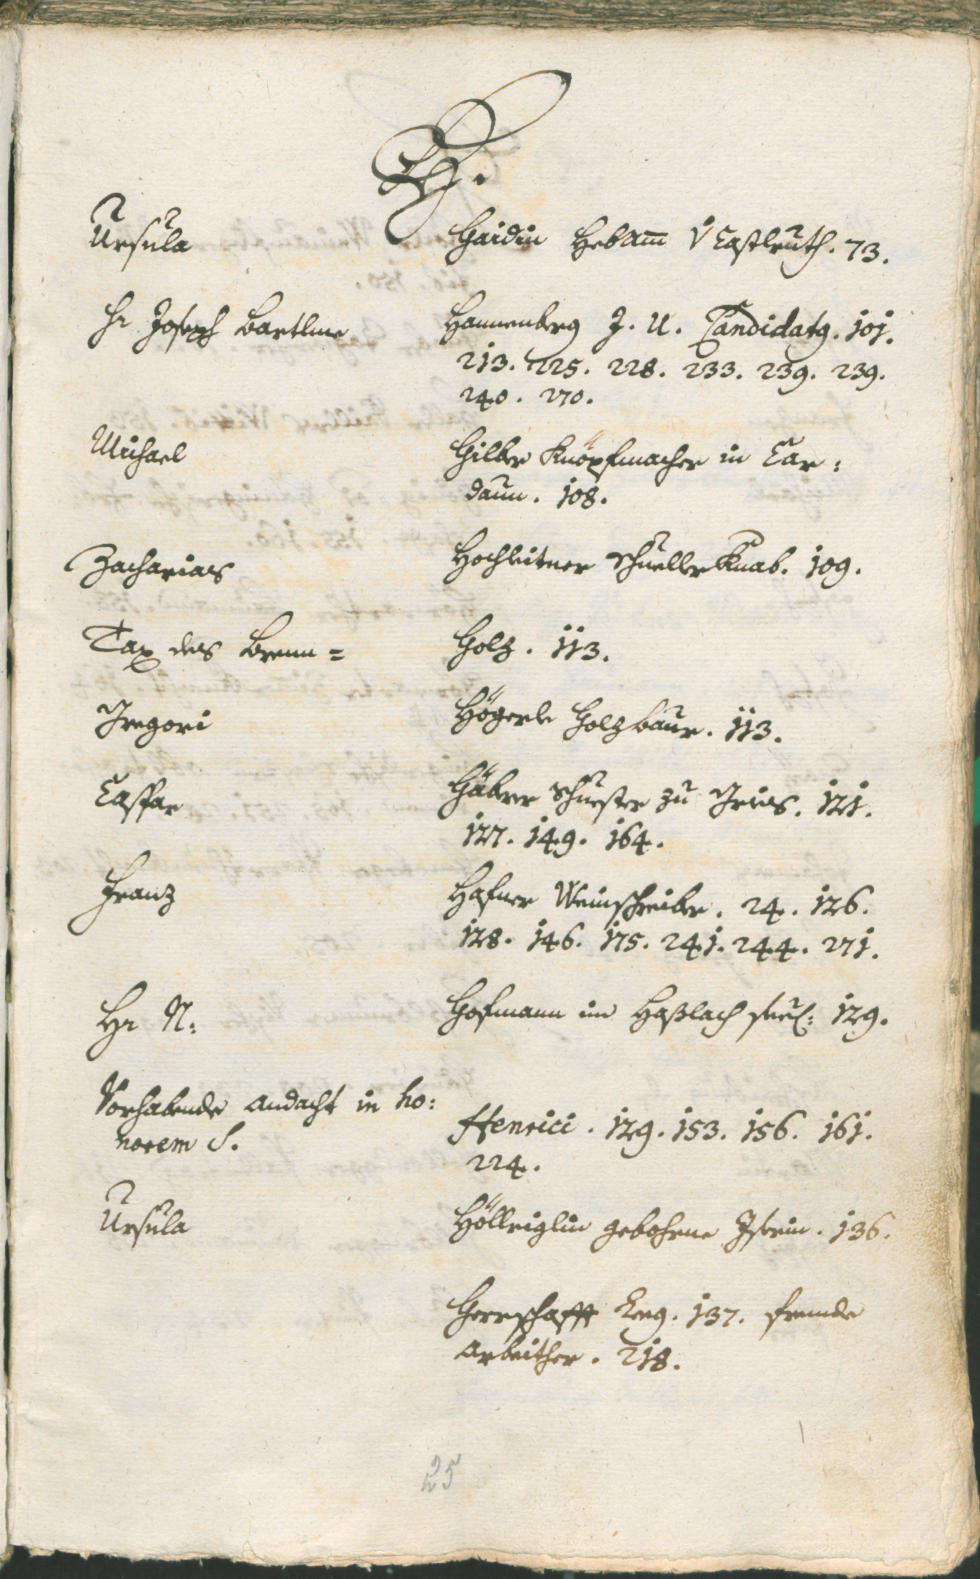 H.
Ursula Haidin Hebam̄ v Castlruth. 73.
Hr Joseph Bartlme Hannenberg J. U. Candidatg. 101.
213. 225. 228. 233. 239. 239.
240. 270.
Michael Hilber Knöpfmacher in Car:
daun. 108.
Zacharias Hochleitner Schueller Knab. 109.
Tax des Brenn= Holz. 113.
Gregori Högerle Holzbaur. 113.
Caspar Häbrer Schuester zu Gries. 121.
127. 149. 164.
Franz Hafner Weinschreiber. 24. 126.
128. 146. 175. 241. 244. 271.
Hr N: Hofmann im Haßlach 129.
Vorhabende Andacht in ho:
norem S. Henrici. 129. 153. 156. 161.
224.
Ursula Höllriglin gebohrne Isserin. 136.
Herrschafft Leng. 137. frembde
Arbeither. 218.
25